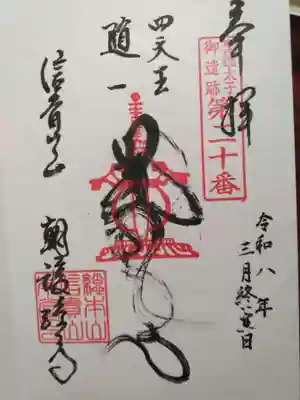 奉拝
聖徳太子
御遺跡
第二十番
四天王
随一
信貴山
朝護孫子寺
総本山
信貴山
令和八年
三月終い寅日